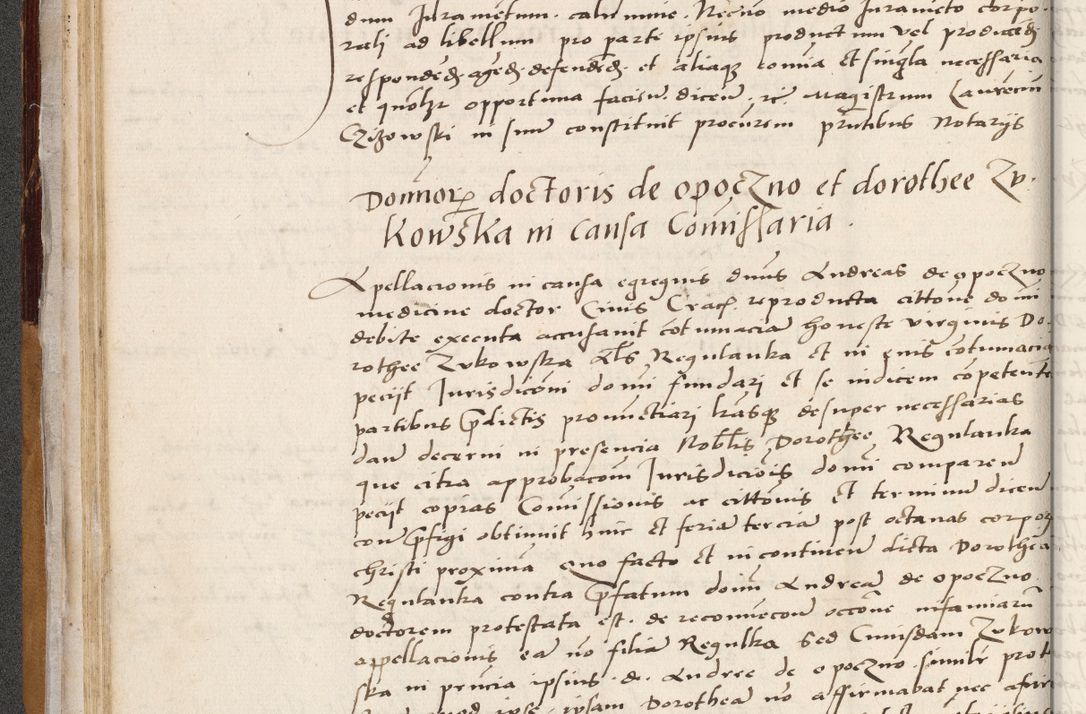 dum Juramentum calumnie. Necno medio Juramento corpo-
rali ad libellum pro parte ipsius productum vel producedum
respondedum agedum defendedum et aliaque omnia et singula necessaria
et quolibet opportuna facien. dicen. etc. Magistrum Laurenciu
Czizowski in suum constituit procurem pntibus Notarijs
Domnor doctoris de opoczno et dorothee Zu-
kowska in causa Comissaria.
Apellacionis in causa egregius dnus Andreas de opoczno
medicine doctor Civis Crac. reproducta cittone domi
debite executa accusavit cotumacia honeste virginis Do-
rothee Zukowska Als Regulanka et in eius cotumacia
pecijt Jurisdicioni domi fundari et se iudicem competente
partibus predictis pronunctiari lrasque desuper necessarias
dan decerni in presencia Noblis Dorothee Regulanka
que citra approbacom Jurisdiciois domi comparen
pecijt copias Comissionis ac cittonis et terminu dicen
con prefigi obtinuit hinc et feria tercia post octavas corporis
christi proxima Quo facto et in continen dicta Dorothea
Regulanka contra prefatum domi Andrea de opoczno
doctorem protestata est. de reconvencon occone infamiaru
appellacionis ea no filia Regulka Sed Cuiusdam Zukow
ska in prncia ipsius. d. Andree de opoczno similr prot
ipse ipsam Dorothea no affirmabat nec